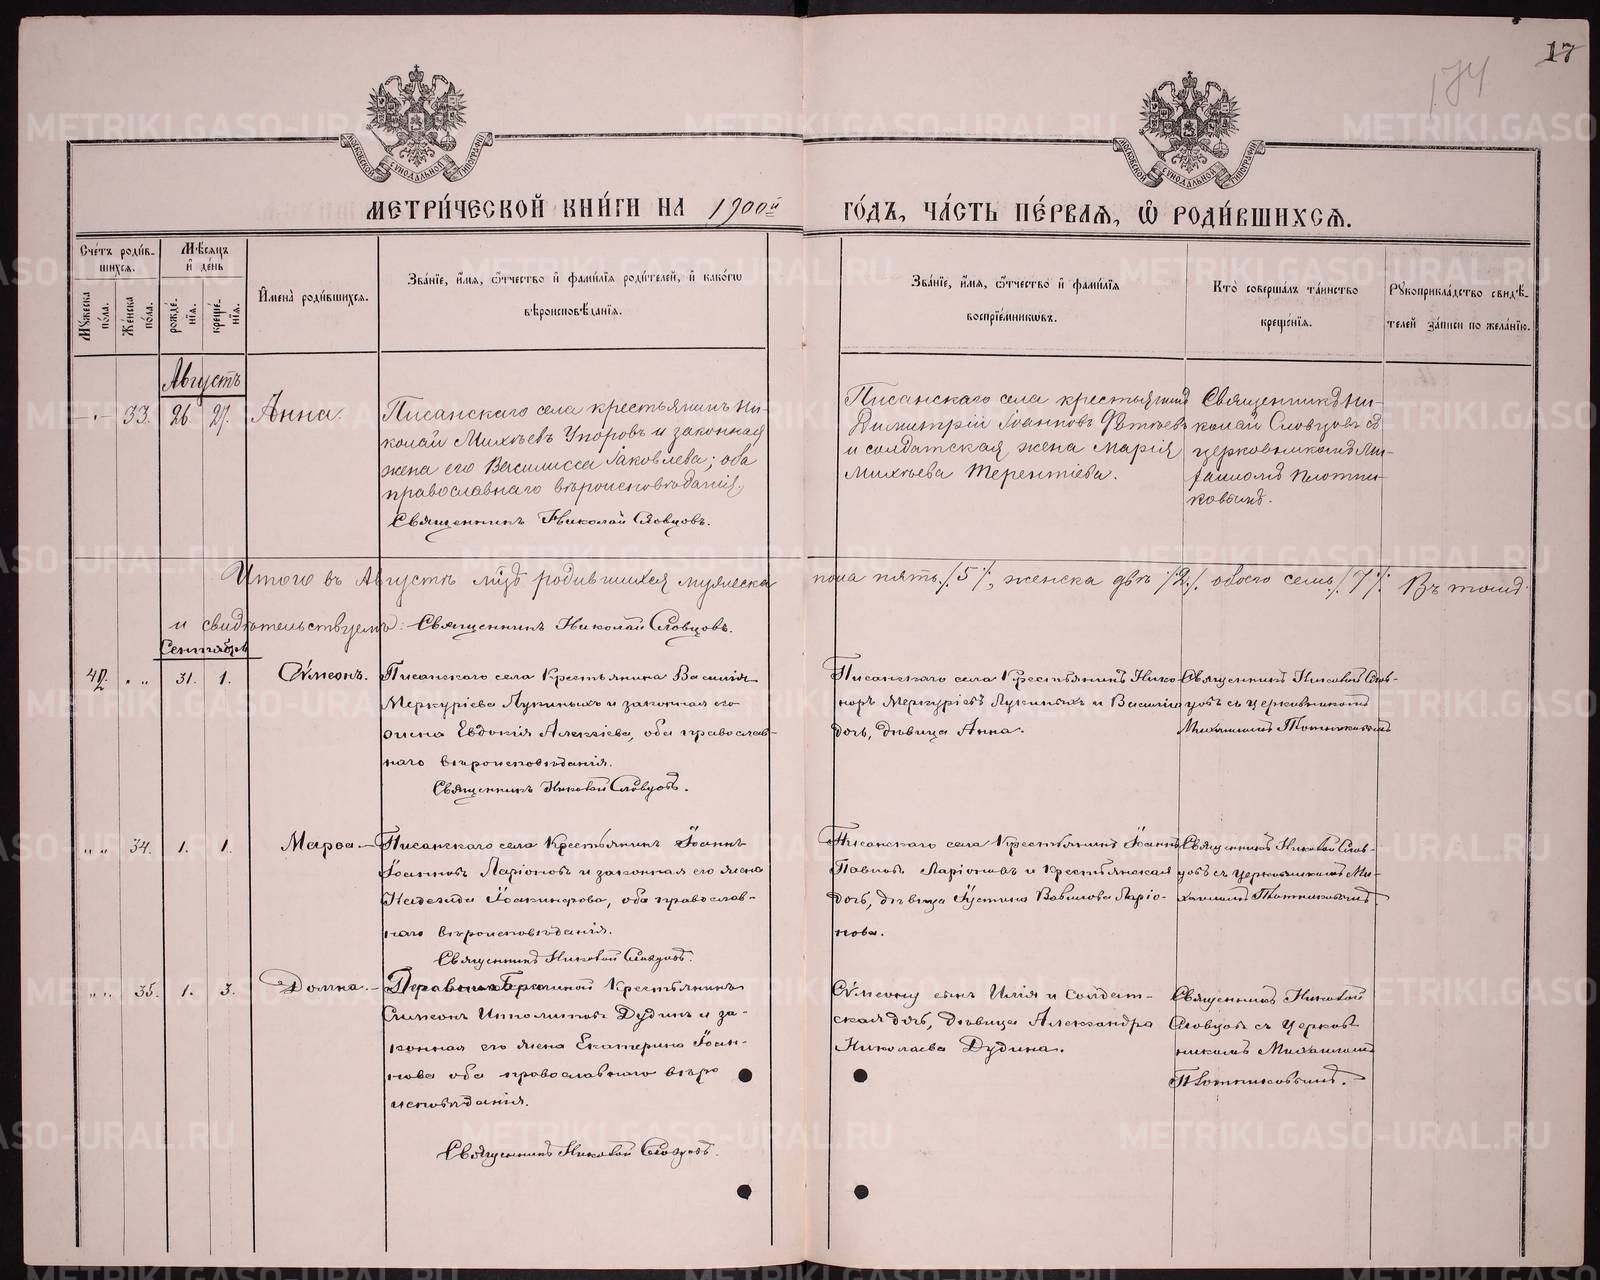 17
174
МЕТРИ́ЧЕСКОЙ КНИ́ГИ НА 1900й
ГО́ДЪ, ЧА́СТЬ ПЕ́РВАѦ, Ѡ҆ РОДИ́ВШИХСѦ.
Сче́тъ роди́в-
шихсѧ.
Мѣ́сѧцъ
и҆ де́нь
Мꙋжеска по́ла.
Же́нска по́ла.
рожде́нїѧ.
креще́нїѧ.
И҆мена̀ роди́вшихсѧ.
Зва́нїе, и҆́мѧ, ѻ҆́тчество и҆ фами́лїѧ роди́телей, и҆ како́гѡ
вѣроисповѣ́данїѧ.
Зва́нїе, и҆́мѧ, ѻ҆́тчество и҆ фами́лїѧ
воспрїе́мникѡвъ.
Кто̀ соверша́лъ та́инство
креще́нїѧ.
Рꙋкоприкла́дство свидѣ́-
телей за́писи по жела́нїю.
Августъ
33. 26. 27. Анна.
Писанскаго села крестьянинъ Ни-
колай Михѣевъ Упоровъ и законная
жена его Василисса Іаковлева; оба
православнаго вѣроисповѣданія.
Священникъ Николай Словцовъ.
Писанскаго села крестьянинъ
Димитрій Іоанновъ
и солдатская жена Марія
Михѣева Терентіева.
Священникъ Ни-
колай Словцовъ съ
церковникомъ Ми-
хаиломъ Плотни-
ковымъ.
Итого въ Августѣ мцѣ родившихся мужеска пола пять /5/, женска двѣ /2/, обоего семь /7/. Въ томъ
и свидѣтельствуемъ: Священникъ Николай Словцовъ.
Сентябрь
42. " " 31. 1. Сѵмеонъ.
Писанскаго села Крестьянина Василія
Меркуріева Лукиныхъ и законная его
жена Евдокія Алексіева, оба православ-
наго вѣроисповѣданія.
Священникъ Николай Словцовъ.
Писанскаго села Крестьянинъ Нико-
норъ Меркуріевъ Лукиныхъ и Василія
дочь, дѣвица Анна.
Священникъ Николай Слов-
цовъ съ церковникомъ
Михаиломъ Плотниковымъ
" " 34. 1. 1. Марѳа.
Писанскаго села Крестьянинъ Іоаннъ
Іоанновъ Ларіоновъ и законная его жена
Надежда Іоакинфова, оба православ-
наго вѣроисповѣданія.
Священникъ Николай Словцовъ.
Писанскаго села Крестьянинъ Іоаннъ
Павловъ Ларіоновъ и Крестьянская
дочь, дѣвица Іустина Вавилова Ларіо-
нова.
Священникъ Николай Слов-
цовъ съ церковникомъ Ми-
хаиломъ Плотниковымъ
" " 35. 1. 3. Домна.
Деревни Крестьянинъ
Симеонъ Ипполитовъ Дудинъ и за-
конная его жена Екатерина Іоан-
нова оба православнаго вѣро
исповѣданія.
Священникъ Николай Словцовъ.
Сѵмеону сынъ Илія и Солдат-
ская дочь, дѣвица Александра
Николаева Дудина.
Священникъ Николай
Словцовъ съ Церков
никомъ Михаиломъ
Плотниковымъ.
METRIKI.GASO-URAL.RU